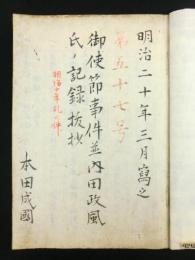 明治二十年三月寫之
第五十七号
御使節事件並内田政風
氏ノ記録抜抄
明治
本田成國